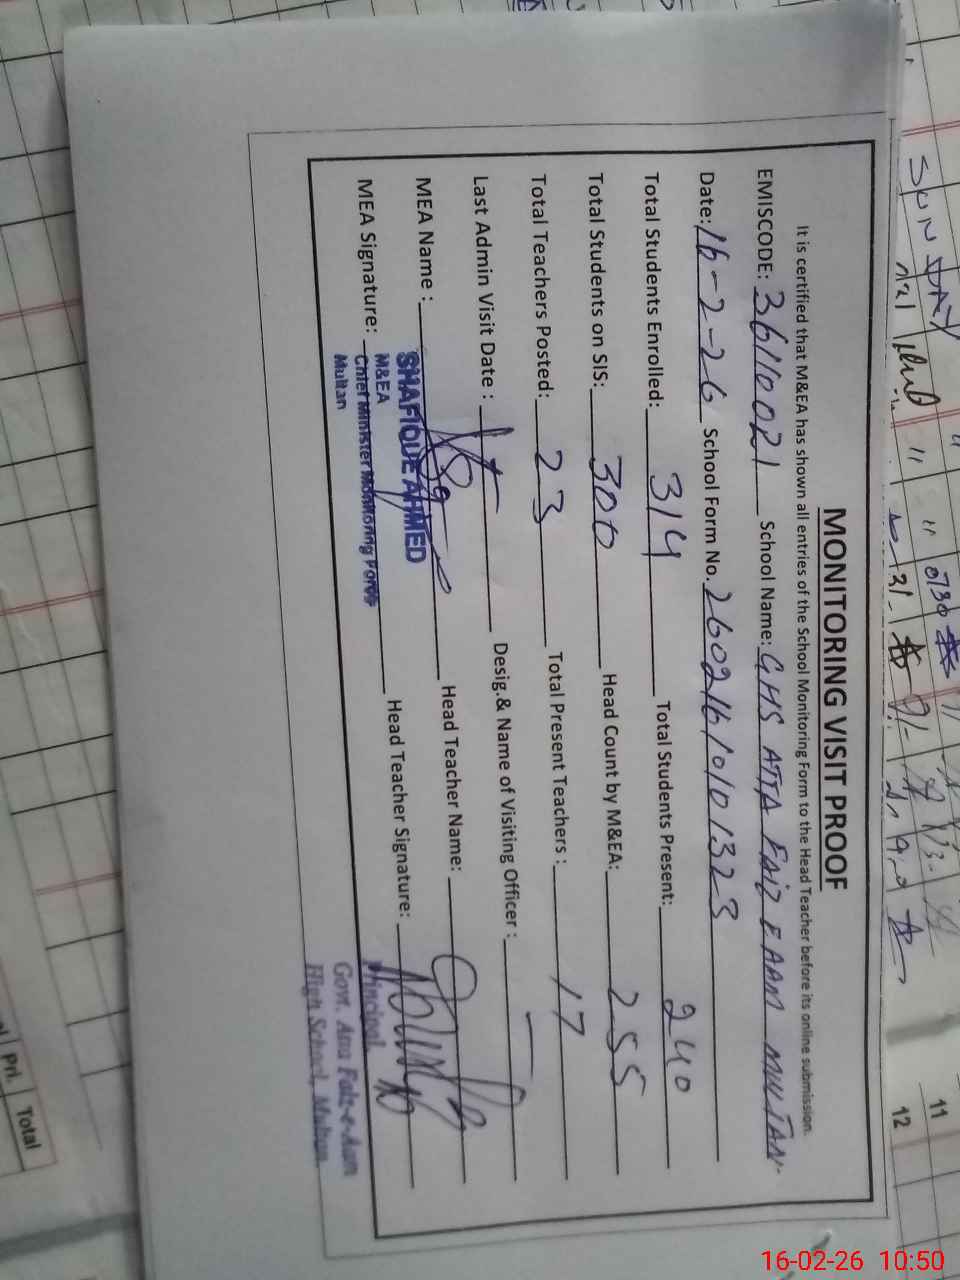 MONITORING VISIT PROOF
It is certified that M&EA has shown all entries of the School Monitoring Form to the Head Teacher before its online submission.
EMISCODE: 36110021 School Name: GHS ATTA FAIZ E AAM MULTAN.
Date: 16-2-26 School Form No. 26021610101323
Total Students Enrolled: 314 Total Students Present: 240
Total Students on SIS: 300 Head Count by M&EA: 255
Total Teachers Posted: 23 Total Present Teachers : 17
Last Admin Visit Date : Desig.& Name of Visiting Officer : —
MEA Name : Head Teacher Name:
MEA Signature: Head Teacher Signature:
SHAFIQUE AHMED
M&EA
Chief Minister Monitoring Force
Multan
Principal
Govt. Atta Faiz-e-Aam
High School, Multan.
SUNDAY
11
12
Pri. Total
16-02-26 10:50